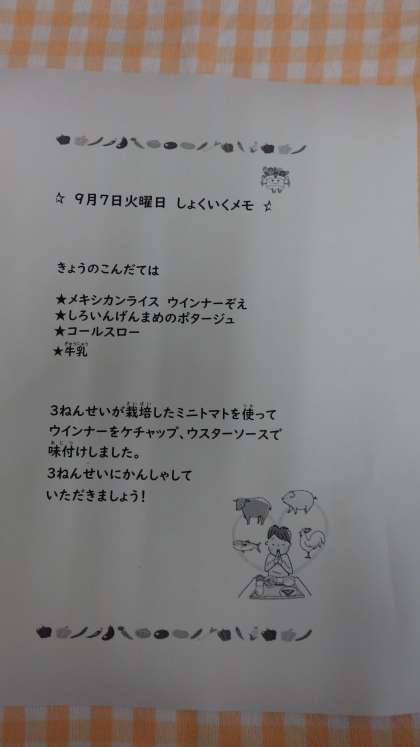 ☆ 9月7日火曜日 しょくいくメモ ☆
きょうのこんだては
★メキシカンライス ウインナーぞえ
★しろいんげんまめのポタージュ
★コールスロー
★牛乳
3ねんせいが栽培したミニトマトを使って
ウインナーをケチャップ、ウスターソースで
味付けしました。
3ねんせいにかんしゃして
いただきましょう!